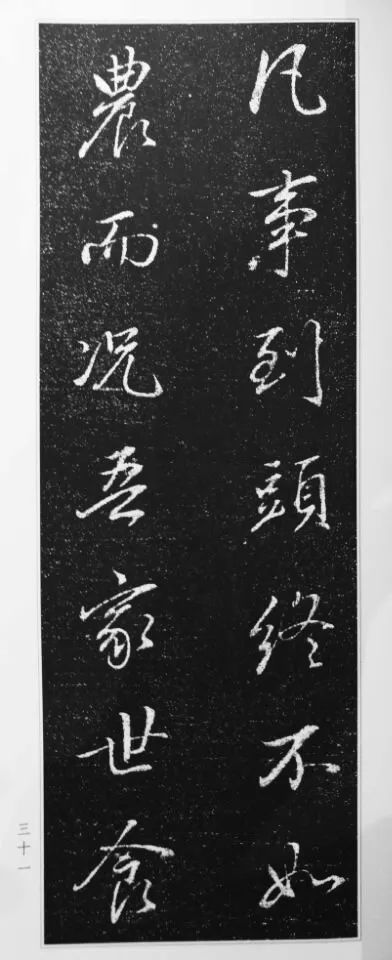 凡事到頭終不如
農而况吾家世食
三十一